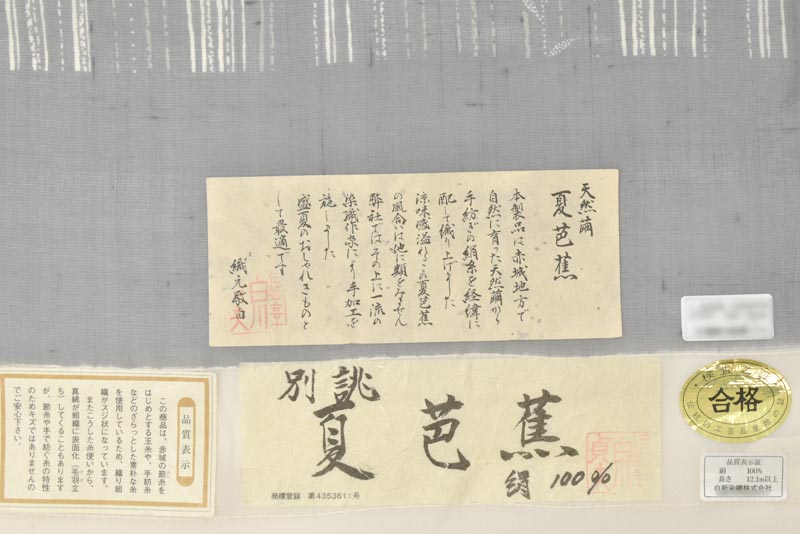 天然繭
夏芭蕉
本製品は赤城地方で
自然に育った天然繭から
手紡ぎの絹糸を経緯に
配して織り上げました
涼味感溢れるこの夏芭蕉
の風合いは他に類をみません
弊社ではその上に一流の
染織作家により手加工を
施しました
盛夏のおしゃれきものと
して最適です
織元敬白
別誂
夏芭蕉
絹100%
商標登録 第435361号
品質表示
この商品は、赤城の節糸を
はじめとする玉糸や、手紡糸
などのざらっとした素朴な糸
を使用しているため、織り組
織がスジ状になっています。
またこうした糸使いから、
真綿が組織に表面化(毛羽立
ち)してくることもあります
が、節糸や手で紡ぐ糸の特性
のためキズではありませんの
でご安心下さい。
合格
品質表示証
絹 100%
長さ 12.1m以上
白新染織株式会社